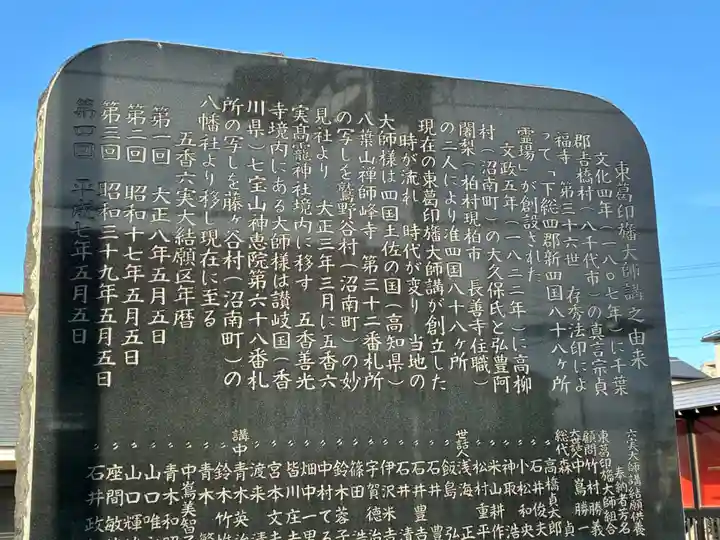 東葛印旛大師講之由来
文化四年(一八〇七年)に千葉
郡吉橋村(八千代市)の真言宗貞
福寺 第三十六世 存秀法印によ
って「下総四郡新四国八十八ヶ所
霊場」が創設された
文政五年(一八二二年)に高柳
村(沼南町)の大久保氏と弘豊阿
闍梨(柏村現柏市 長善寺住職)
の二人により准四国八十八ヶ所
現在の東葛印旛大師講が創立した
時が流れ 時代が変り 当地の
大師様は四国土佐の国(高知県)
八葉山禅師峰寺 第三十二番札所
の写しを鷲野谷村(沼南町)の妙
見社より 大正三年三月に五香六
実高龗神社境内に移す 五香善光
寺境内にある大師様は讃岐国(香
川県)七宝山神恵院第六十八番札
所の写しを藤ヶ谷村(沼南町)の
八幡社より移し現在に至る
五香六実大結願区年暦
第一回 大正八年五月五日
第二回 昭和十七年五月五日
第三回 昭和三十九年五月五日
第四回 平成七年五月五日
六実大師講結願供養
奉納者芳名
東葛印旛大師組合
顧問 竹村勝義
大世話 中嶌勝一
総代 森 貞
〃 高橋貞大郎
〃 石井俊夫
〃 小松和央
〃 神取 浩
〃 米山耕作
〃 松村重平
世話人 浅海 正
〃 飯島 弘
〃 石井 豊
〃 石井豊吉
〃 石井 清
〃 伊沢米
〃 宇賀徳治
〃 篠田 浩
〃 鈴木蓉子
〃 中村てる
〃 畑中一男
〃 皆川庄
〃 宮本文
〃 渡来 清
講中 青木英治
〃 鈴木竹
〃 青木 繁
〃 中嶌美智子
〃 青木和昭
〃 山口唯
〃 山口輝
〃 座間敏
〃 石井政